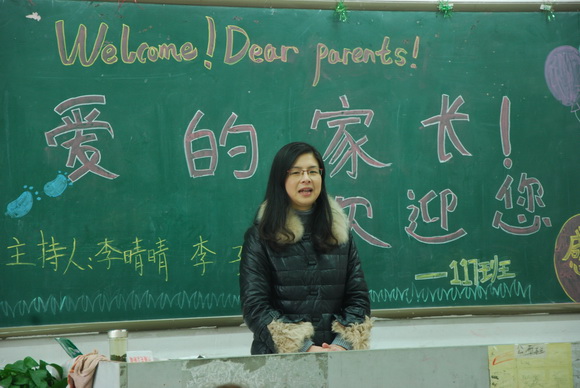 Welcome! Dear parents!
爱的家长!
欢迎您
主持人:李晴晴 李
一117班